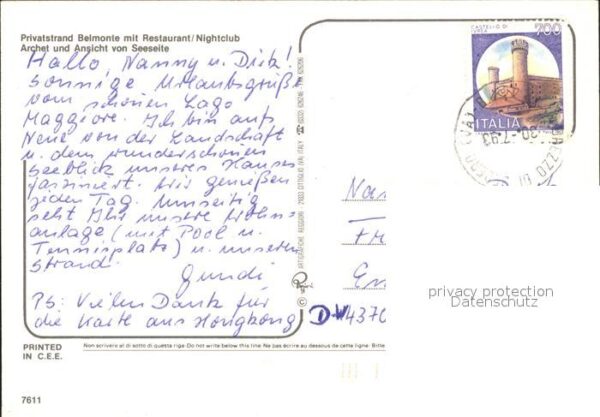 Privatstrand Belmonte mit Restaurant/Nightclub
Archet und Ansicht von Seeseite
Hallo, Nanny u. Dick!
Sonnige Urlaubsgrüße
vom schönen Lago
Maggiore. Ich bin aufs
Neue von der Landschaft
u. dem wunderschönen
Seeblick unseres Hauses
fasziniert. Wir genießen
jeden Tag. Umseitig
seht Ihr unsere Wohn-
anlage (mit Pool u.
Tennisplatz) u. unseren
Strand.
Gundi
PS: Vielen Dank für
die Karte aus Hongkong
PRINTED
IN C.E.E.
7611
Non scrivere al di sotto di questa riga-Do not write below this line-Ne pas écrire au dessous de cette ligne- Bitte
CASTELLO DI
IVREA
700
ITALIA
30-7.93
Na
Fr
Em
D-W4370
privacy protection
Datenschutz